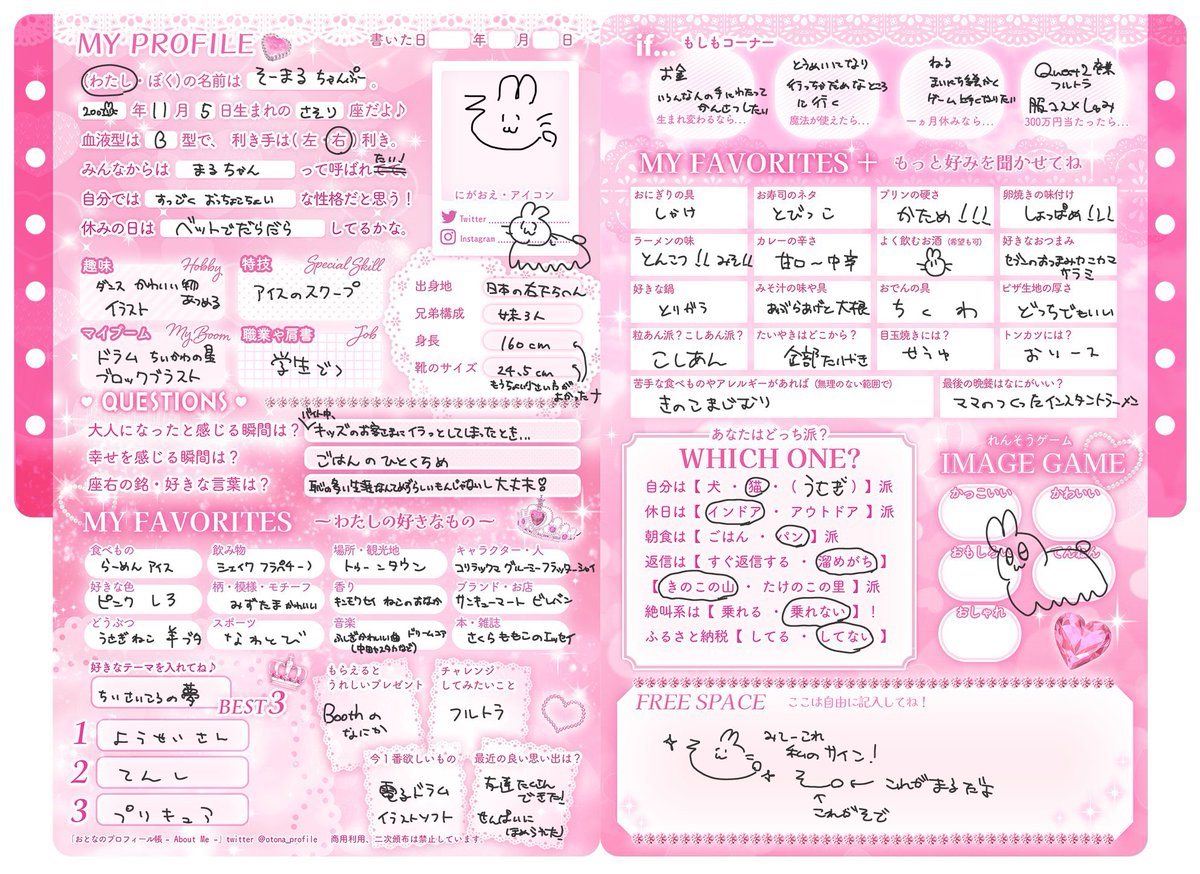 MY PROFILE
書いた日 年 月 日
(わたし・ぼく)の名前は そーまる ちゃんぷー 。
年 11 月 5 日生まれの さそり 座だよ♪
血液型は B 型で、利き手は(左・右)利き。
みんなからは まるちゃん って呼ばれ たい!
自分では すっごく おっちょこちょい な性格だと思う!
休みの日は ベットでだらだら してるかな。
にがおえ・アイコン
Twitter
Instagram
趣味 Hobby
ダンス かわいい物
あつめる
イラスト
特技 Special Skill
アイスのスクープ
マイブーム My Boom
ドラム ちいかわの星
ブロックブラスト
職業や肩書 Job
学生でっ
出身地 日本の右下らへん
兄弟構成 妹3人
身長 160cm
靴のサイズ 24.5cm
もうちょい小さい方が
よかったナ
QUESTIONS
大人になったと感じる瞬間は? バイト中、キッズのお客さまにイラっとしてしまったとき…
幸せを感じる瞬間は? ごはんのひとくちめ
座右の銘・好きな言葉は? 恥の多い生涯なんてめずらしいもんじゃないし大丈夫!
MY FAVORITES ~わたしの好きなもの~
食べもの 飲み物 場所・観光地 キャラクター・人
らーめん アイス シェイク フラペチーノ トゥーンタウン コリラックマ グルーミー フラッターシャイ
好きな色 柄・模様・モチーフ 香り ブランド・お店
ピンク しろ みずたま かわいい キンモクセイ ねこのおなか サンキューマート ビレバン
どうぶつ スポーツ 音楽 本・雑誌
うさぎ ねこ 羊 ブタ なわとび ふしぎかわいい曲 ドリームコア さくらももこのエッセイ
(中田ヤスタカなど)
好きなテーマを入れてね♪
ちいさいころの夢
BEST3
1 ようせいさん
2 てんし
3 プリキュア
もらえると
うれしいプレゼント
Boothの
なにか
チャレンジ
してみたいこと
フルトラ
今1番欲しいもの
電子ドラム
イラストソフト
最近の良い思い出は?
友達たくさん
できた!
せんぱいに
ほめらた!
「おとなのプロフィール帳 - About Me -」twitter @otona_profile 商用利用、二次頒布は禁止しています。
if... もしもコーナー
お金
いろんな人の手にわたって
かんさつしたい
生まれ変わるなら…
とうめいになり
行っちゃだめなところ
に行く
魔法が使えたら…
ねる
まいにち絵かく
ゲーム上手くなりたい
一ヵ月休みなら…
Quest2 卒業
フルトラ
服 コスメ しゅみ
300万円当たったら…
MY FAVORITES + もっと好みを聞かせてね
おにぎりの具 お寿司のネタ プリンの硬さ 卵焼きの味付け
しゃけ とびっこ かため!!! しょっぱめ!!!
ラーメンの味 カレーの辛さ よく飲むお酒(希望も可) 好きなおつまみ
とんこつ!!みそ!! 甘口〜中辛 セブンのおつまみカニカマ
サラミ
好きな鍋 みそ汁の味や具 おでんの具 ピザ生地の厚さ
とりがら あぶらあげと大根 ちくわ どっちでもいい
粒あん派?こしあん派? たいやきはどこから? 目玉焼きには? トンカツには?
こしあん 全部たいらげき せうゆ おソース
苦手な食べものやアレルギーがあれば(無理のない範囲で) 最後の晩餐はなにがいい?
きのこ まじむり ママのつくったインスタントラーメン
あなたはどっち派?
WHICH ONE?
自分は【 犬 ・ 猫 ・( うさぎ )】派
休日は【 インドア ・ アウトドア 】派
朝食は【 ごはん ・ パン 】派
返信は【 すぐ返信する ・ 溜めがち 】
【 きのこの山 ・ たけのこの里 】派
絶叫系は【 乗れる ・ 乗れない 】!
ふるさと納税【 してる ・ してない 】
れんそうゲーム
IMAGE GAME
かっこいい かわいい
おもしろい てんねん
おしゃれ
FREE SPACE ここは自由に記入してね!
みてーこれ
私のサイン!
これがまるだよ
これがそで